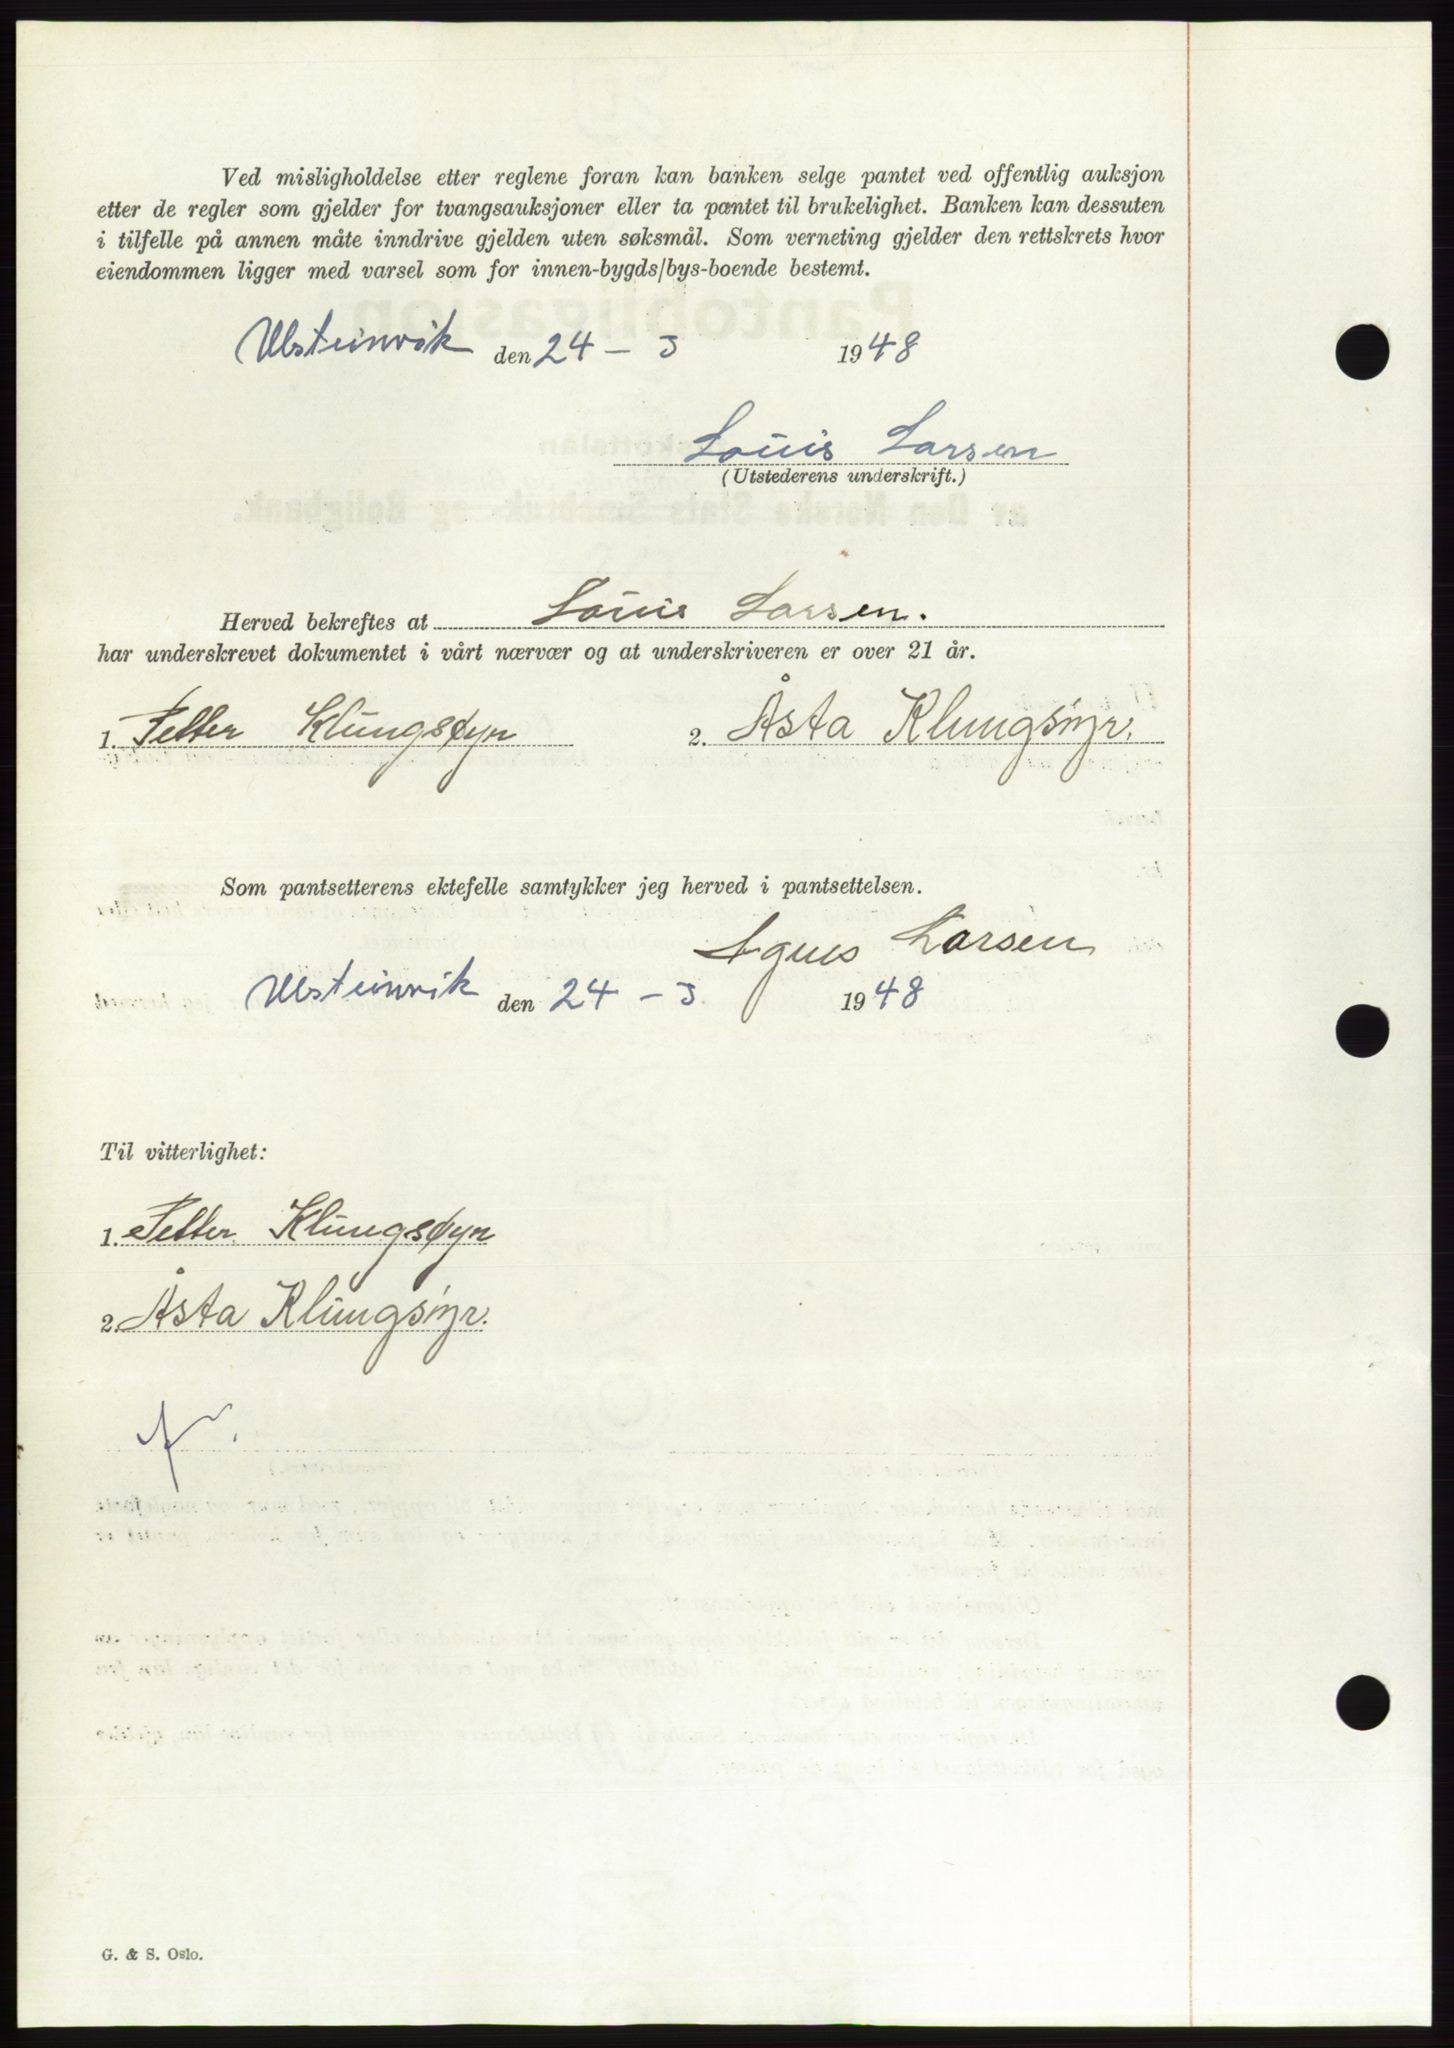 Ved misligholdelse etter reglene foran kan banken selge pantet ved offentlig auksjon
etter de regler som gjelder for tvangsauksjoner eller ta pantet til brukelighet. Banken kan dessuten
i tilfelle på annen måte inndrive gjelden uten søksmål. Som verneting gjelder den rettskrets hvor
eiendommen ligger med varsel som for innen-bygds/bys-boende bestemt.
Ulsteinvik den 24 - 3 1948
Louis Larsen
(Utstederens underskrift.)
Herved bekreftes at Louis Larsen.
har underskrevet dokumentet i vårt nærvær og at underskriveren er over 21 år.
1. Petter Klungsøyr 2. Åsta Klungsöyr.
Som pantsetterens ektefelle samtykker jeg herved i pantsettelsen.
Agnes Larsen
Ulsteinvik den 24 - 3 1948
Til vitterlighet:
1. Petter Klungsøyr
2. Åsta Klungsöyr.
G. & S. Oslo.